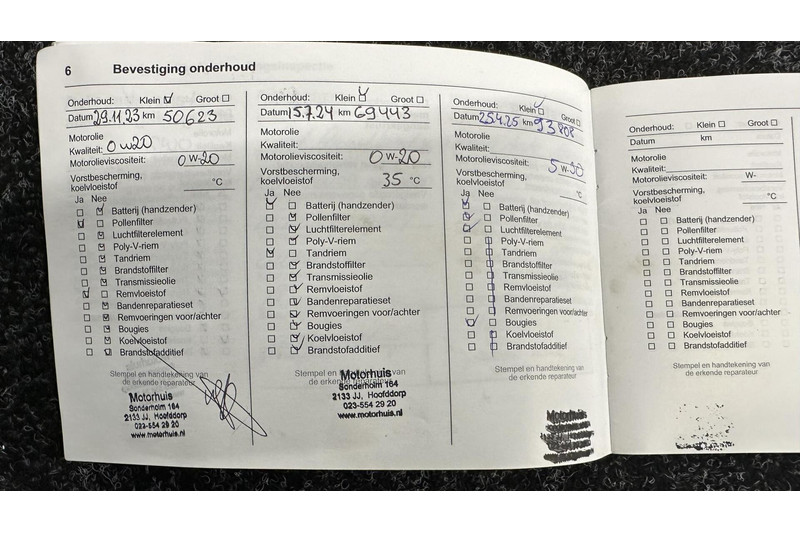 6 Bevestiging onderhoud
Onderhoud: Klein Groot
Datum 29.11.23 km 50623
Motorolie
Kwaliteit: 0W20
Motorolieviscositeit: 0 W-20
Vorstbescherming,
koelvloeistof °C
Ja Nee
Batterij (handzender)
Pollenfilter
Luchtfilterelement
Poly-V-riem
Tandriem
Brandstoffilter
Transmissieolie
Remvloeistof
Bandenreparatieset
Remvoeringen voor/achter
Bougies
Koelvloeistof
Brandstofadditief
Stempel en handtekening van
de erkende reparateur
Motorhuis
Sonderholm 164
2133 JJ, Hoofddorp
023-554 29 20
www.motorhuis.nl
Onderhoud: Klein Groot
Datum 15.7.24 km 69443
Motorolie
Kwaliteit:
Motorolieviscositeit: 0 W-20
Vorstbescherming,
koelvloeistof 35 °C
Ja Nee
Batterij (handzender)
Pollenfilter
Luchtfilterelement
Poly-V-riem
Tandriem
Brandstoffilter
Transmissieolie
Remvloeistof
Bandenreparatieset
Remvoeringen voor/achter
Bougies
Koelvloeistof
Brandstofadditief
Stempel en handtekening van
de erkende reparateur
Motorhuis
Sonderholm 164
2133 JJ, Hoofddorp
023-554 29 20
www.motorhuis.nl
Onderhoud: Klein Groot
Datum 25.4.25 km 93808
Motorolie
Kwaliteit:
Motorolieviscositeit: 5 W-30
Vorstbescherming,
koelvloeistof °C
Ja Nee
Batterij (handzender)
Pollenfilter
Luchtfilterelement
Poly-V-riem
Tandriem
Brandstoffilter
Transmissieolie
Remvloeistof
Bandenreparatieset
Remvoeringen voor/achter
Bougies
Koelvloeistof
Brandstofadditief
Stempel en handtekening van
de erkende reparateur
Motorhuis
Onderhoud: Klein Groot
Datum km
Motorolie
Kwaliteit:
Motorolieviscositeit: W-
Vorstbescherming,
koelvloeistof °C
Ja Nee
Batterij (handzender)
Pollenfilter
Luchtfilterelement
Poly-V-riem
Tandriem
Brandstoffilter
Transmissieolie
Remvloeistof
Bandenreparatieset
Remvoeringen voor/achter
Bougies
Koelvloeistof
Brandstofadditief
Stempel en handtekening van
de erkende reparateur